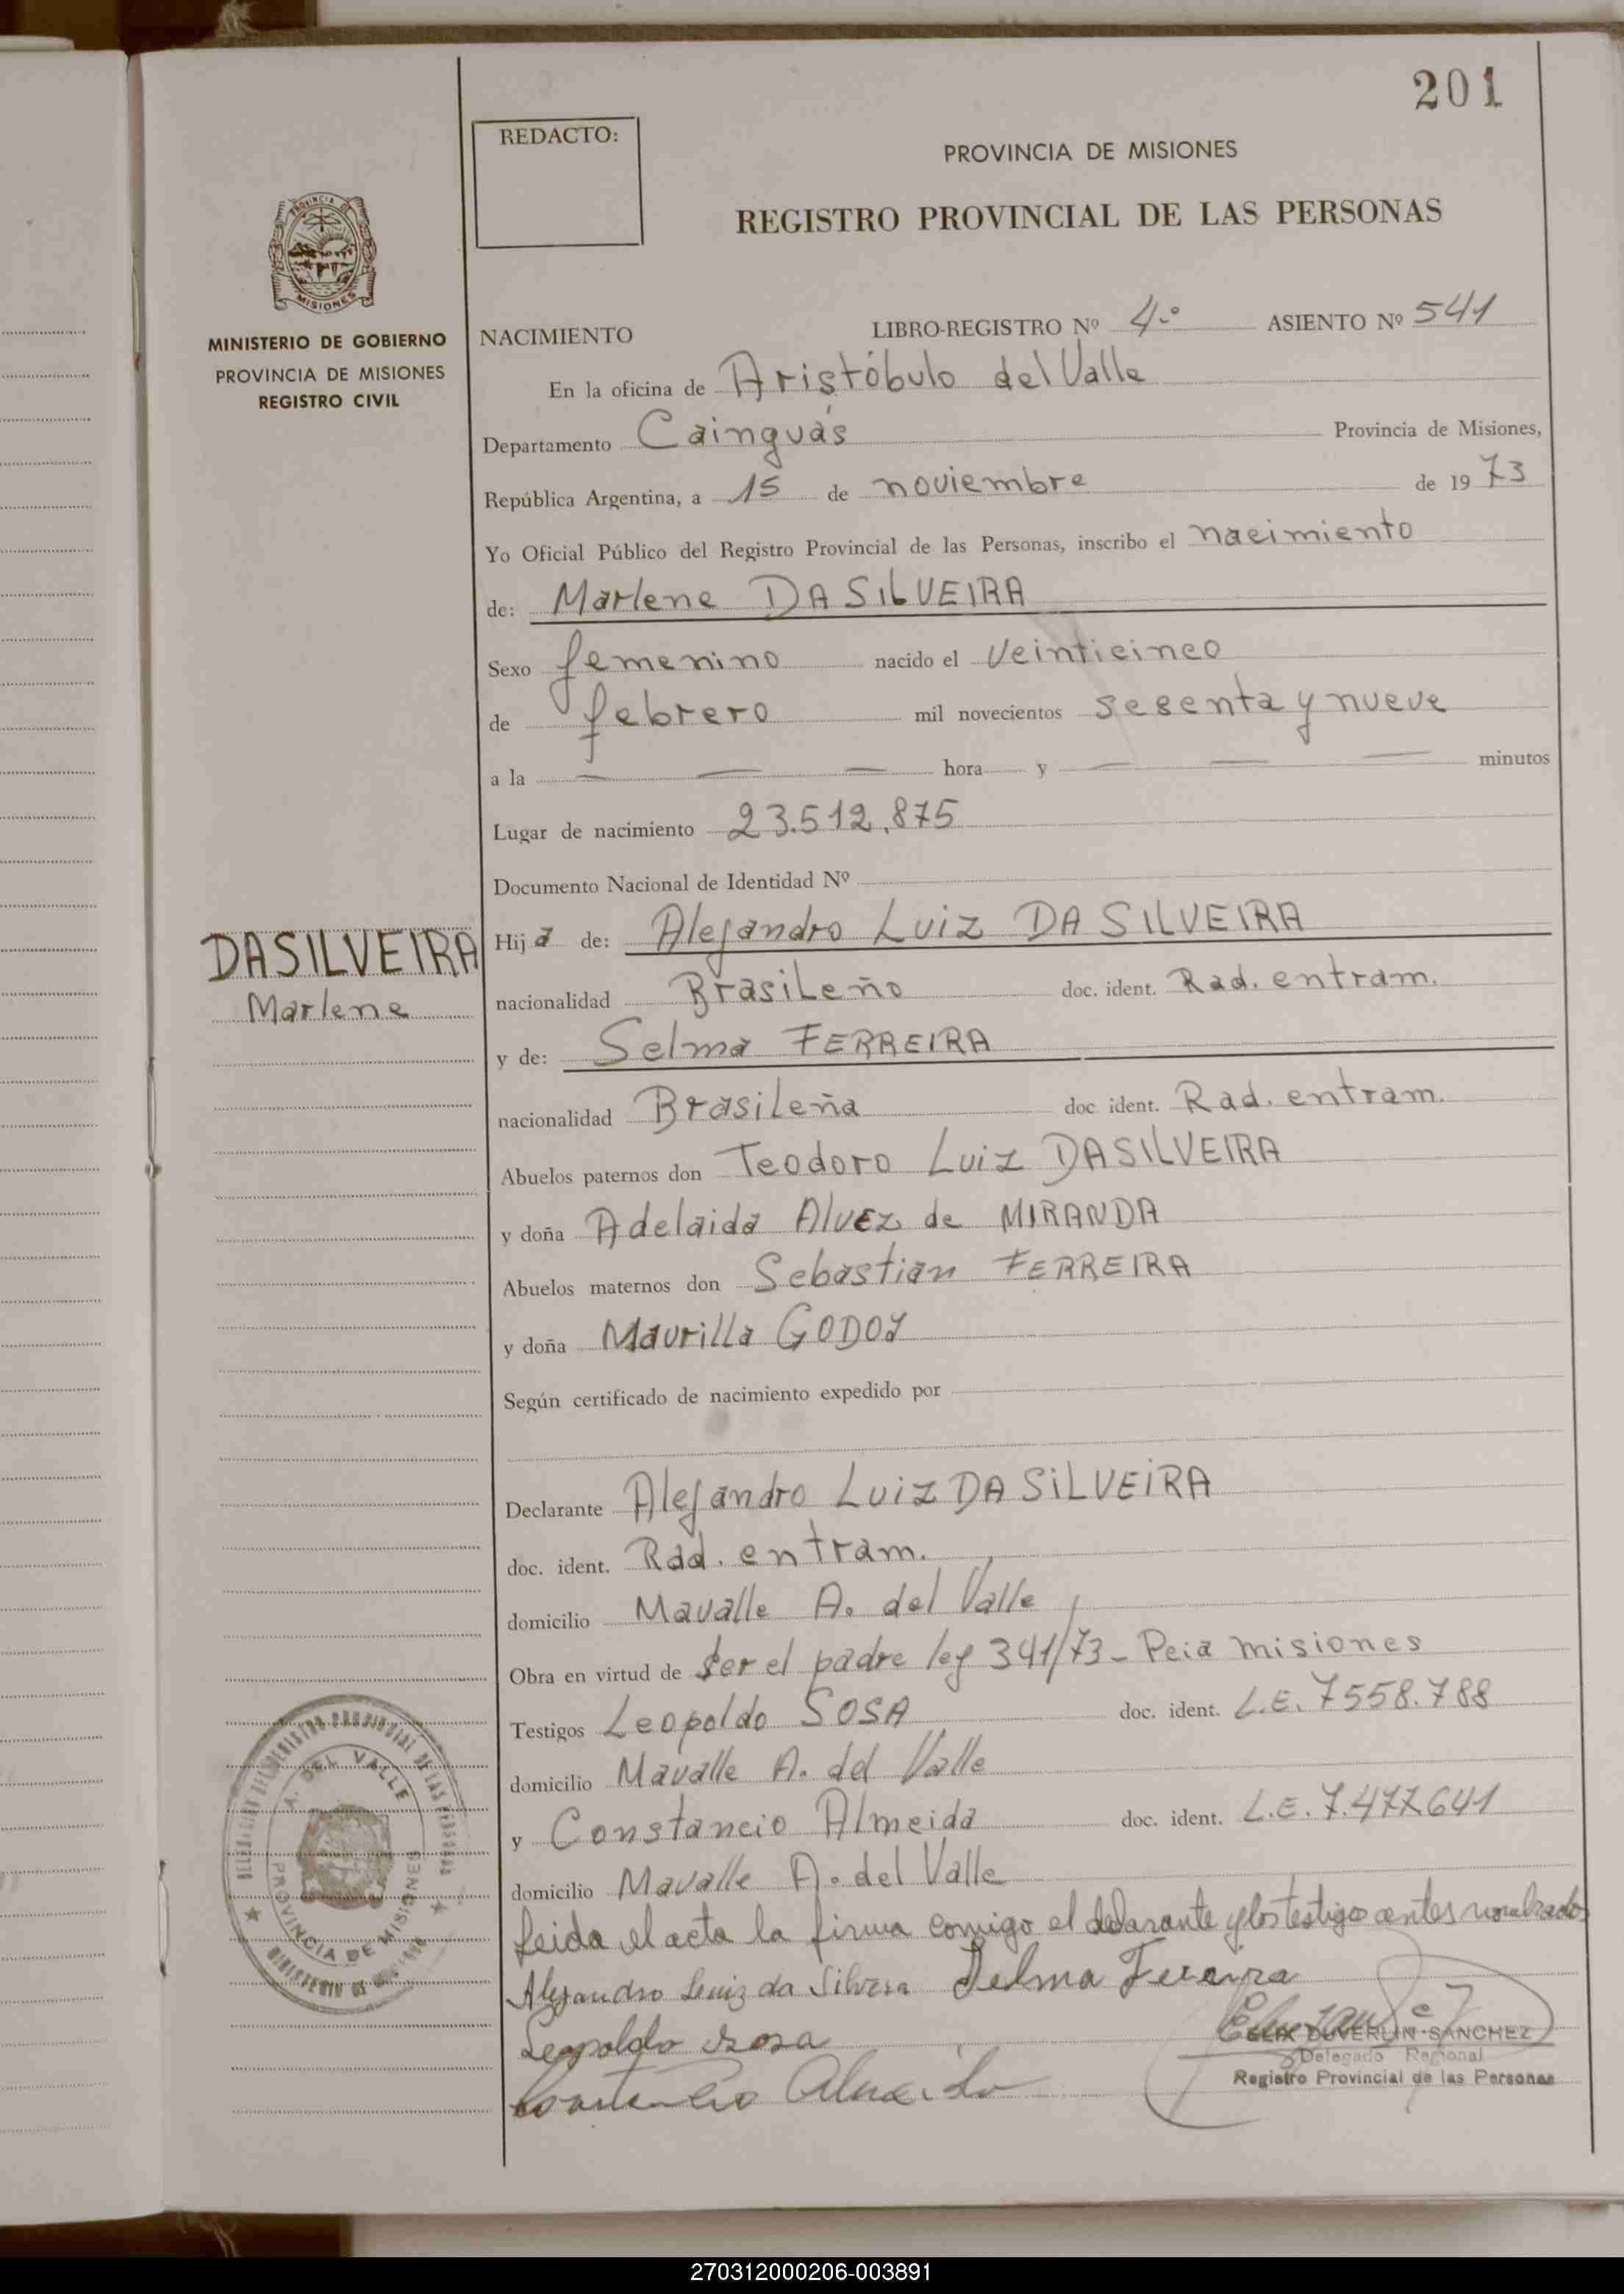 201
REDACTO:
PROVINCIA DE MISIONES
REGISTRO PROVINCIAL DE LAS PERSONAS
MISIONES
MINISTERIO DE GOBIERNO
PROVINCIA DE MISIONES
REGISTRO CIVIL
NACIMIENTO LIBRO-REGISTRO Nº 4.º ASIENTO Nº 541
En la oficina de Aristóbulo del Valle
Departamento Cainguás Provincia de Misiones,
República Argentina, a 15 de noviembre de 1973
Yo Oficial Público del Registro Provincial de las Personas, inscribo el nacimiento
de: Marlene DA SILVEIRA
Sexo femenino nacido el veinticinco
de febrero mil novecientos sesenta y nueve
a la — — — hora y — — — minutos
Lugar de nacimiento 23.512.875
Documento Nacional de Identidad Nº
DASILVEIRA
Marlene
Hija de: Alejandro Luiz DA SILVEIRA
nacionalidad Brasileño doc. ident. Rad. entram.
y de: Selma FERREIRA
nacionalidad Brasileña doc ident. Rad. entram.
Abuelos paternos don Teodoro Luiz DASILVEIRA
y doña Adelaida Alvez de MIRANDA
Abuelos maternos don Sebastian FERREIRA
y doña Maurilla GODOY
Según certificado de nacimiento expedido por
Declarante Alejandro Luiz DA SILVEIRA
doc. ident. Rad. entram.
domicilio Mavalle A. del Valle
Obra en virtud de ser el padre ley 341/73 - Pcia misiones
Testigos Leopoldo SOSA doc. ident. L.E. 7558.788
domicilio Mavalle A. del Valle
y Constancio Almeida doc. ident. L.E. 7.477.641
domicilio Mavalle A. del Valle
Leida el acta la firma comigo el declarante y los testigos antes nombrados
Alejandro Luiz da Silvera Selma Fereira
Leopoldo Sosa
Constancio Almeida
FELIX DUVERLIN SANCHEZ
Delegado Regional
Registro Provincial de las Personas
A. DEL VALLE
PROVINCIA DE MISIONES
270312000206-003891